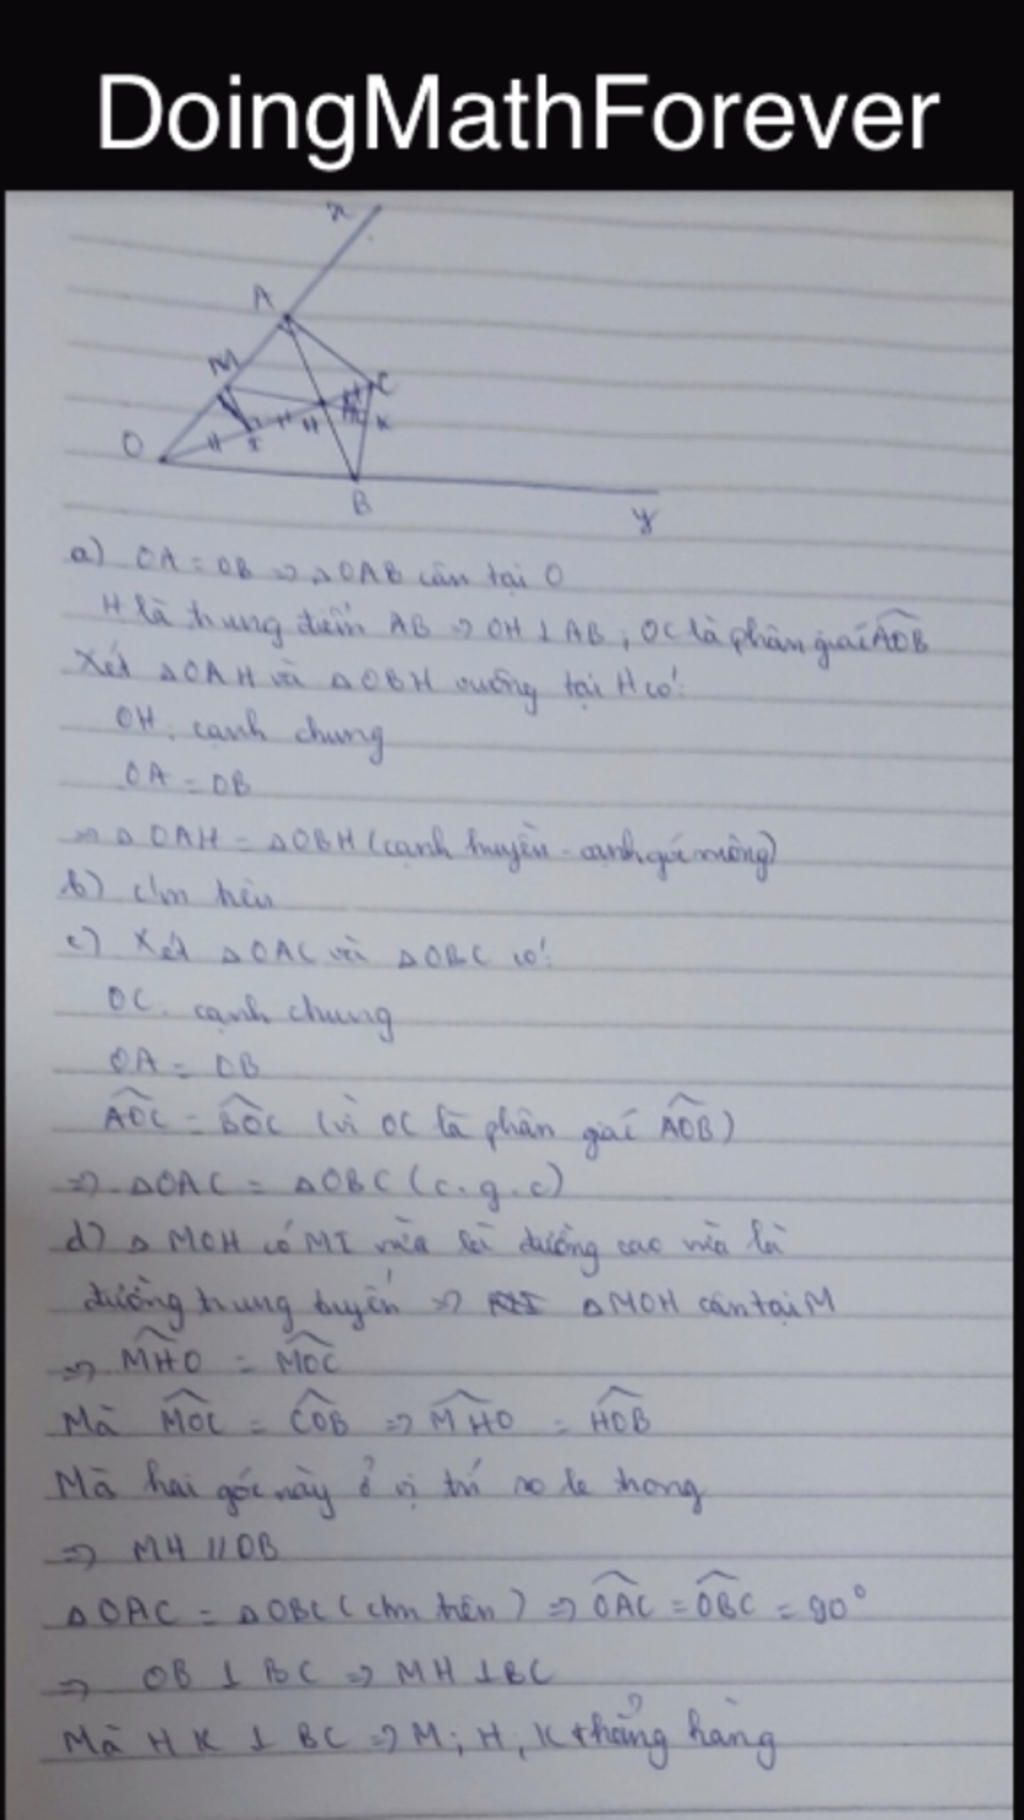 DoingMathForever
x
A
M
C
H
K
O
I
B
y
a) OA = OB => △OAB cân tại O
H là trung điểm AB => OH ⊥ AB, OC là phân giác AOB
Xét △OAH và △OBH vuông tại H có:
OH: cạnh chung
OA = OB
=> △OAH = △OBH (cạnh huyền - cạnh góc vuông)
b) c/m trên
c) Xét △OAC và △OBC có:
OC: cạnh chung
OA = OB
AOC = BOC (vì OC là phân giác AOB)
=> △OAC = △OBC (c.g.c)
d) △MOH có MI vừa là đường cao vừa là
đường trung tuyến => △MOH cân tại M
=> MHO = MOC
Mà MOC = COB => MHO = HOB
Mà hai góc này ở vị trí so le trong
=> MH // OB
△OAC = △OBC (chm trên) => OAC = OBC = 90°
=> OB ⊥ BC => MH ⊥ BC
Mà HK ⊥ BC => M, H, K thẳng hàng